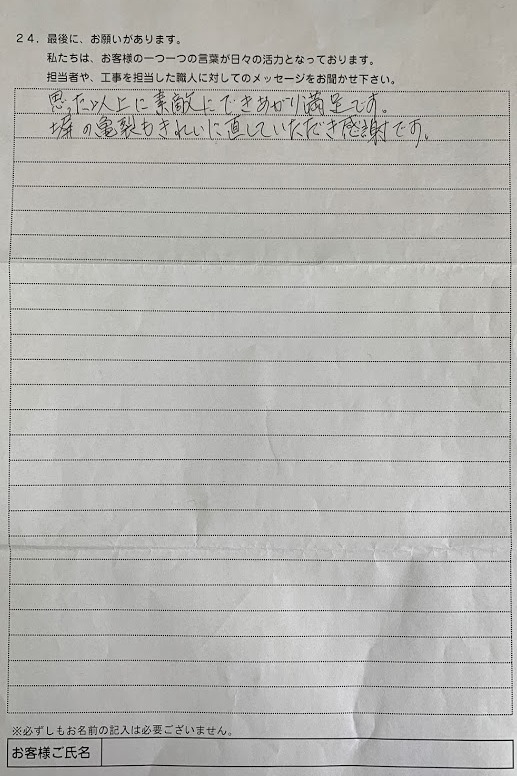 24. 最後に、お願いがあります。
私たちは、お客様の一つ一つの言葉が日々の活力となっております。
担当者や、工事を担当した職人に対してのメッセージをお聞かせ下さい。
思った以上に素敵にできあがり満足です。
塀の亀裂もきれいに直していただき感謝です。
※必ずしもお名前の記入は必要ございません。
お客様ご氏名